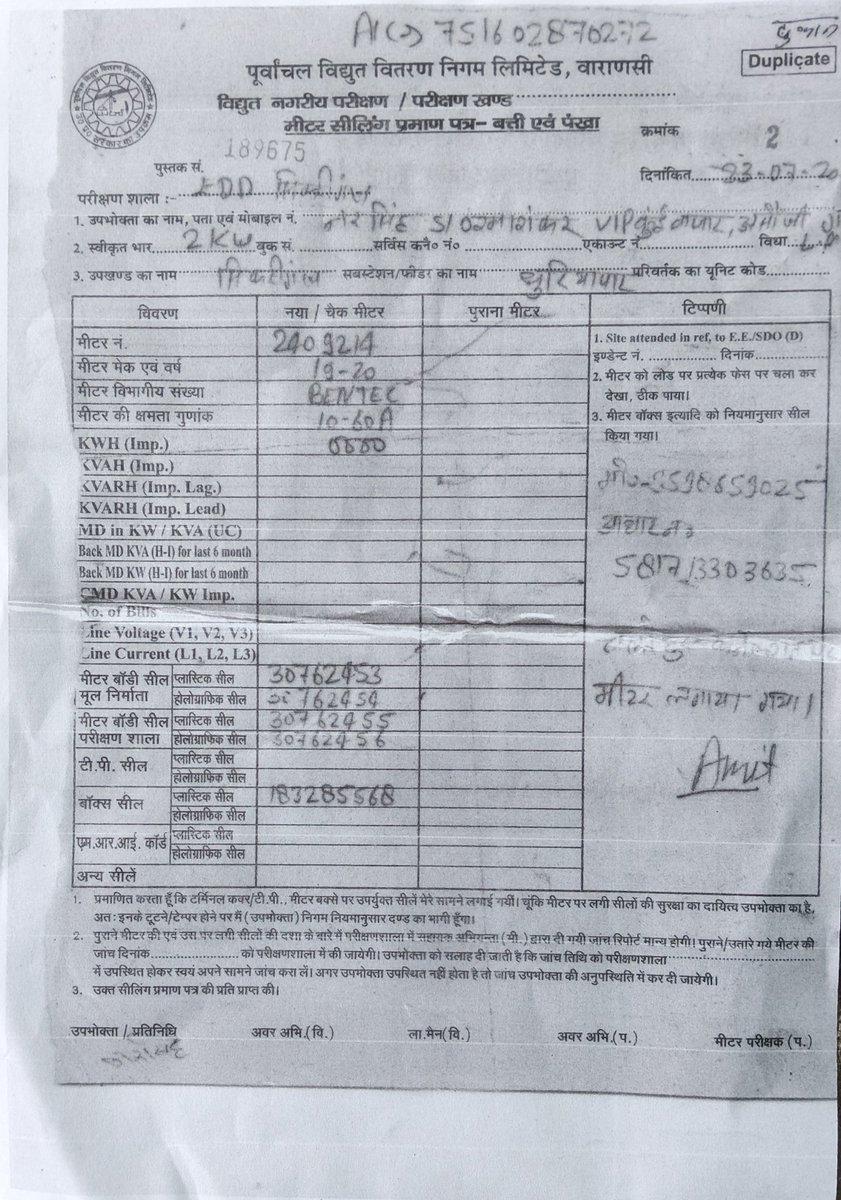 A/C 751602870272
Duplicate
पूर्वांचल विद्युत वितरण निगम लिमिटेड, वाराणसी
विद्युत नगरीय परीक्षण / परीक्षण खण्ड
मीटर सीलिंग प्रमाण पत्र- बत्ती एवं पंखा
क्रमांक 2
पुस्तक सं. 189675
दिनांकित 23-07-20
परीक्षण शाला :- EDD
1. उपभोक्ता का नाम, पता एवं मोबाइल नं. S/O VIP
2. स्वीकृत भार 2KW बुक सं. सर्विस कनै० नं० एकाउन्ट नं. विधा
3. उपखण्ड का नाम सबस्टेशन/फीडर का नाम धुरियापार परिवर्तक का यूनिट कोड
विवरण नया / चैक मीटर पुराना मीटर टिप्पणी
मीटर नं. 2409214
मीटर मेक एवं वर्ष 19-20
मीटर विभागीय संख्या BENTEC
मीटर की क्षमता गुणांक 10-60A
KWH (Imp.) 0000
KVAH (Imp.)
KVARH (Imp. Lag.)
KVARH (Imp. Lead)
MD in KW / KVA (UC)
Back MD KVA (H-I) for last 6 month
Back MD KW (H-I) for last 6 month
CMD KVA / KW Imp.
No. of Bills
Line Voltage (V1, V2, V3)
Line Current (L1, L2, L3)
मीटर बॉडी सील प्लास्टिक सील 30762453
मूल निर्माता होलोग्राफिक सील 30762454
मीटर बॉडी सील प्लास्टिक सील 30762455
परीक्षण शाला होलोग्राफिक सील 30762456
टी.पी. सील प्लास्टिक सील
होलोग्राफिक सील
बॉक्स सील प्लास्टिक सील 183285568
होलोग्राफिक सील
एम.आर.आई. कॉर्ड प्लास्टिक सील
होलोग्राफिक सील
अन्य सीलें
1. Site attended in ref, to E.E./SDO (D)
इण्डेन्ट नं. दिनांक
2. मीटर को लोड पर प्रत्येक फेस पर चला कर
देखा, ठीक पाया।
3. मीटर वॉक्स इत्यादि को नियमानुसार सील
किया गया।
मो०-9598659025
आधार नं०
581713303635
मीटर लगाया गया।
Amit
1. प्रमाणित करता हूँ कि टर्मिनल कवर/टी.पी., मीटर बक्से पर उपर्युक्त सीलें मेरे सामने लगाई गयीं। चूंकि मीटर पर लगी सीलों की सुरक्षा का दायित्व उपभोक्ता का है,
अत : इनके टूटने/टेम्पर होने पर मैं (उपभोक्ता) निगम नियमानुसार दण्ड का भागी हूँगा।
2. पुराने मीटर की एवं उस पर लगी सीलों की दशा के बारे में परीक्षणशाला में सहायक अभियन्ता (मी.) द्वारा दी गयी जांच रिपोर्ट मान्य होगी। पुराने/उतारे गये मीटर की
जांच दिनांक को परीक्षणशाला में की जायेगी। उपभोक्ता को सलाह दी जाती है कि जांच तिथि को परीक्षणशाला
में उपस्थित होकर स्वयं अपने सामने जांच करा लें। अगर उपभोक्ता उपस्थित नहीं होता है तो जांच उपभोक्ता की अनुपस्थिति में कर दी जायेगी।
3. उक्त सीलिंग प्रमाण पत्र की प्रति प्राप्त की।
उपभोक्ता / प्रतिनिधि अवर अभि.(वि.) ला.मैन(वि.) अवर अभि.(प.) मीटर परीक्षक (प.)